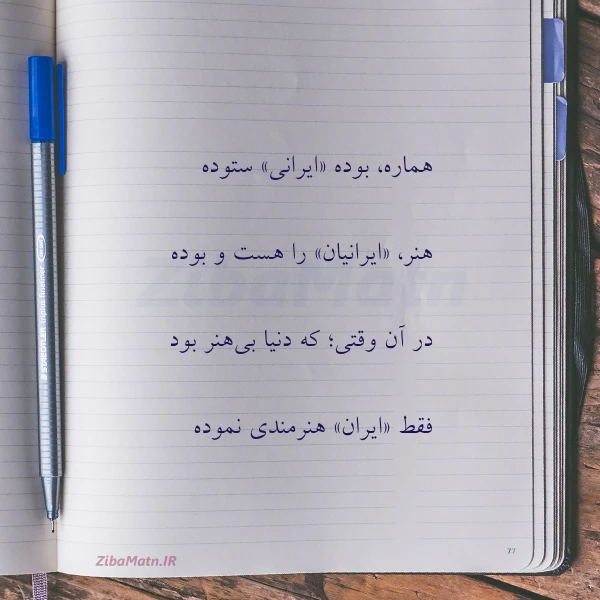 هماره، بوده «ایرانی» ستوده
هنر، «ایرانیان» را هست و بوده
در آن وقتی؛ که دنیا بی‌هنر بود
فقط «ایران» هنرمندی نموده
ZibaMatn
ZibaMatn.IR
STAEDTLER triplus fineliner